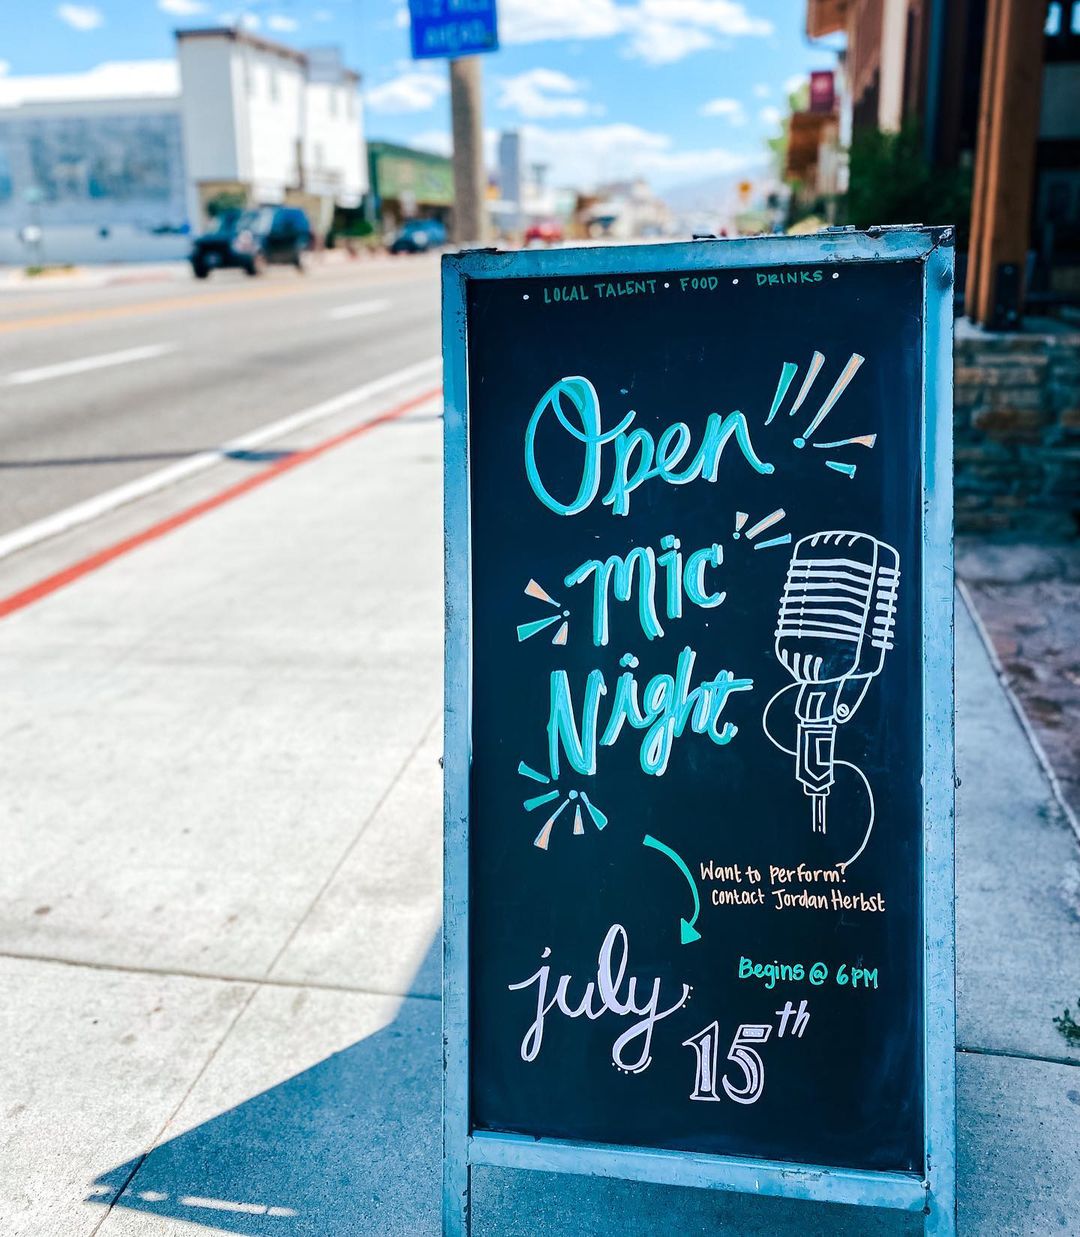 AHEAD
• LOCAL TALENT • FOOD • DRINKS •
Open
Mic
Night
Want to perform?
contact Jordan Herbst
Begins @ 6PM
july
15th